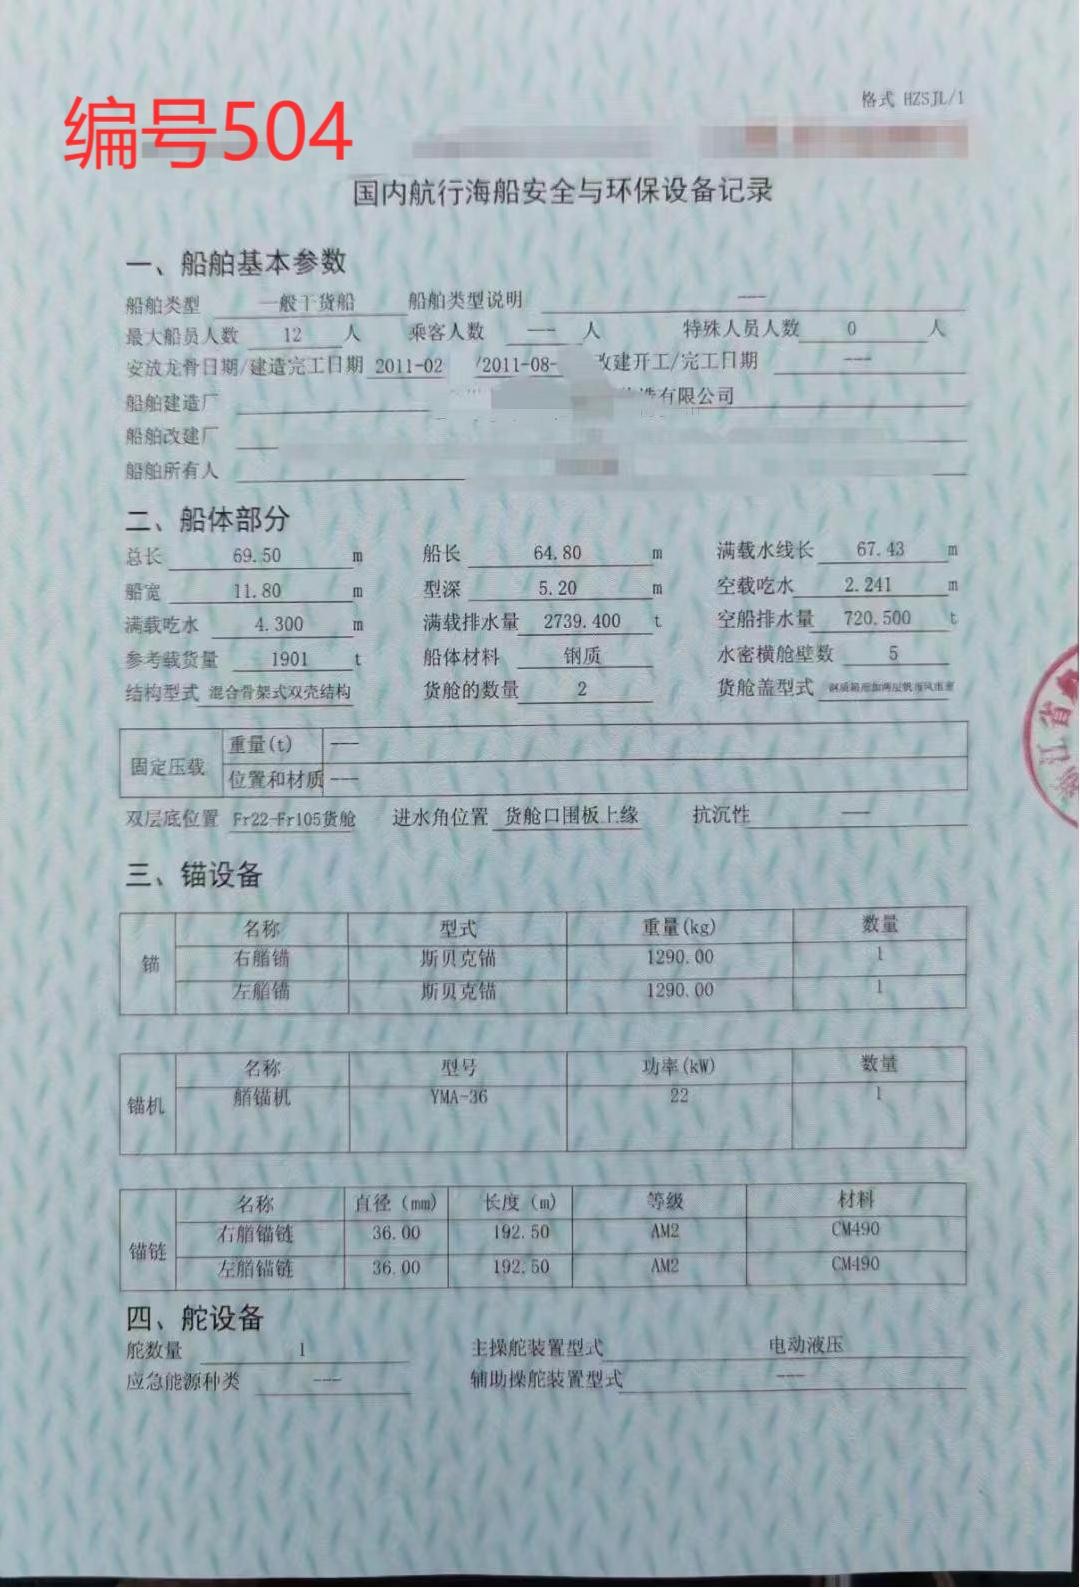 格式 HZSJL/1
编号504
国内航行海船安全与环保设备记录
一、船舶基本参数
船舶类型 一般干货船 船舶类型说明 ---
最大船员人数 12 人 乘客人数 --- 人 特殊人员人数 0 人
安放龙骨日期/建造完工日期 2011-02 /2011-08- 改建开工/完工日期 ---
船舶建造厂 有限公司
船舶改建厂
船舶所有人
二、船体部分
总长 69.50 m 船长 64.80 m 满载水线长 67.43 m
船宽 11.80 m 型深 5.20 m 空载吃水 2.241 m
满载吃水 4.300 m 满载排水量 2739.400 t 空船排水量 720.500 t
参考载货量 1901 t 船体材料 钢质 水密横舱壁数 5
结构型式 混合骨架式双壳结构 货舱的数量 2 货舱盖型式
固定压载 重量(t) ---
位置和材质 ---
双层底位置 Fr22-Fr105货舱 进水角位置 货舱口围板上缘 抗沉性 ---
三、锚设备
锚 名称 型式 重量(kg) 数量
右艏锚 斯贝克锚 1290.00 1
左艏锚 斯贝克锚 1290.00 1
锚机 名称 型号 功率(kW) 数量
艏锚机 YMA-36 22 1
锚链 名称 直径 (mm) 长度 (m) 等级 材料
右艏锚链 36.00 192.50 AM2 CM490
左艏锚链 36.00 192.50 AM2 CM490
四、舵设备
舵数量 1 主操舵装置型式 电动液压
应急能源种类 --- 辅助操舵装置型式 ---
江省